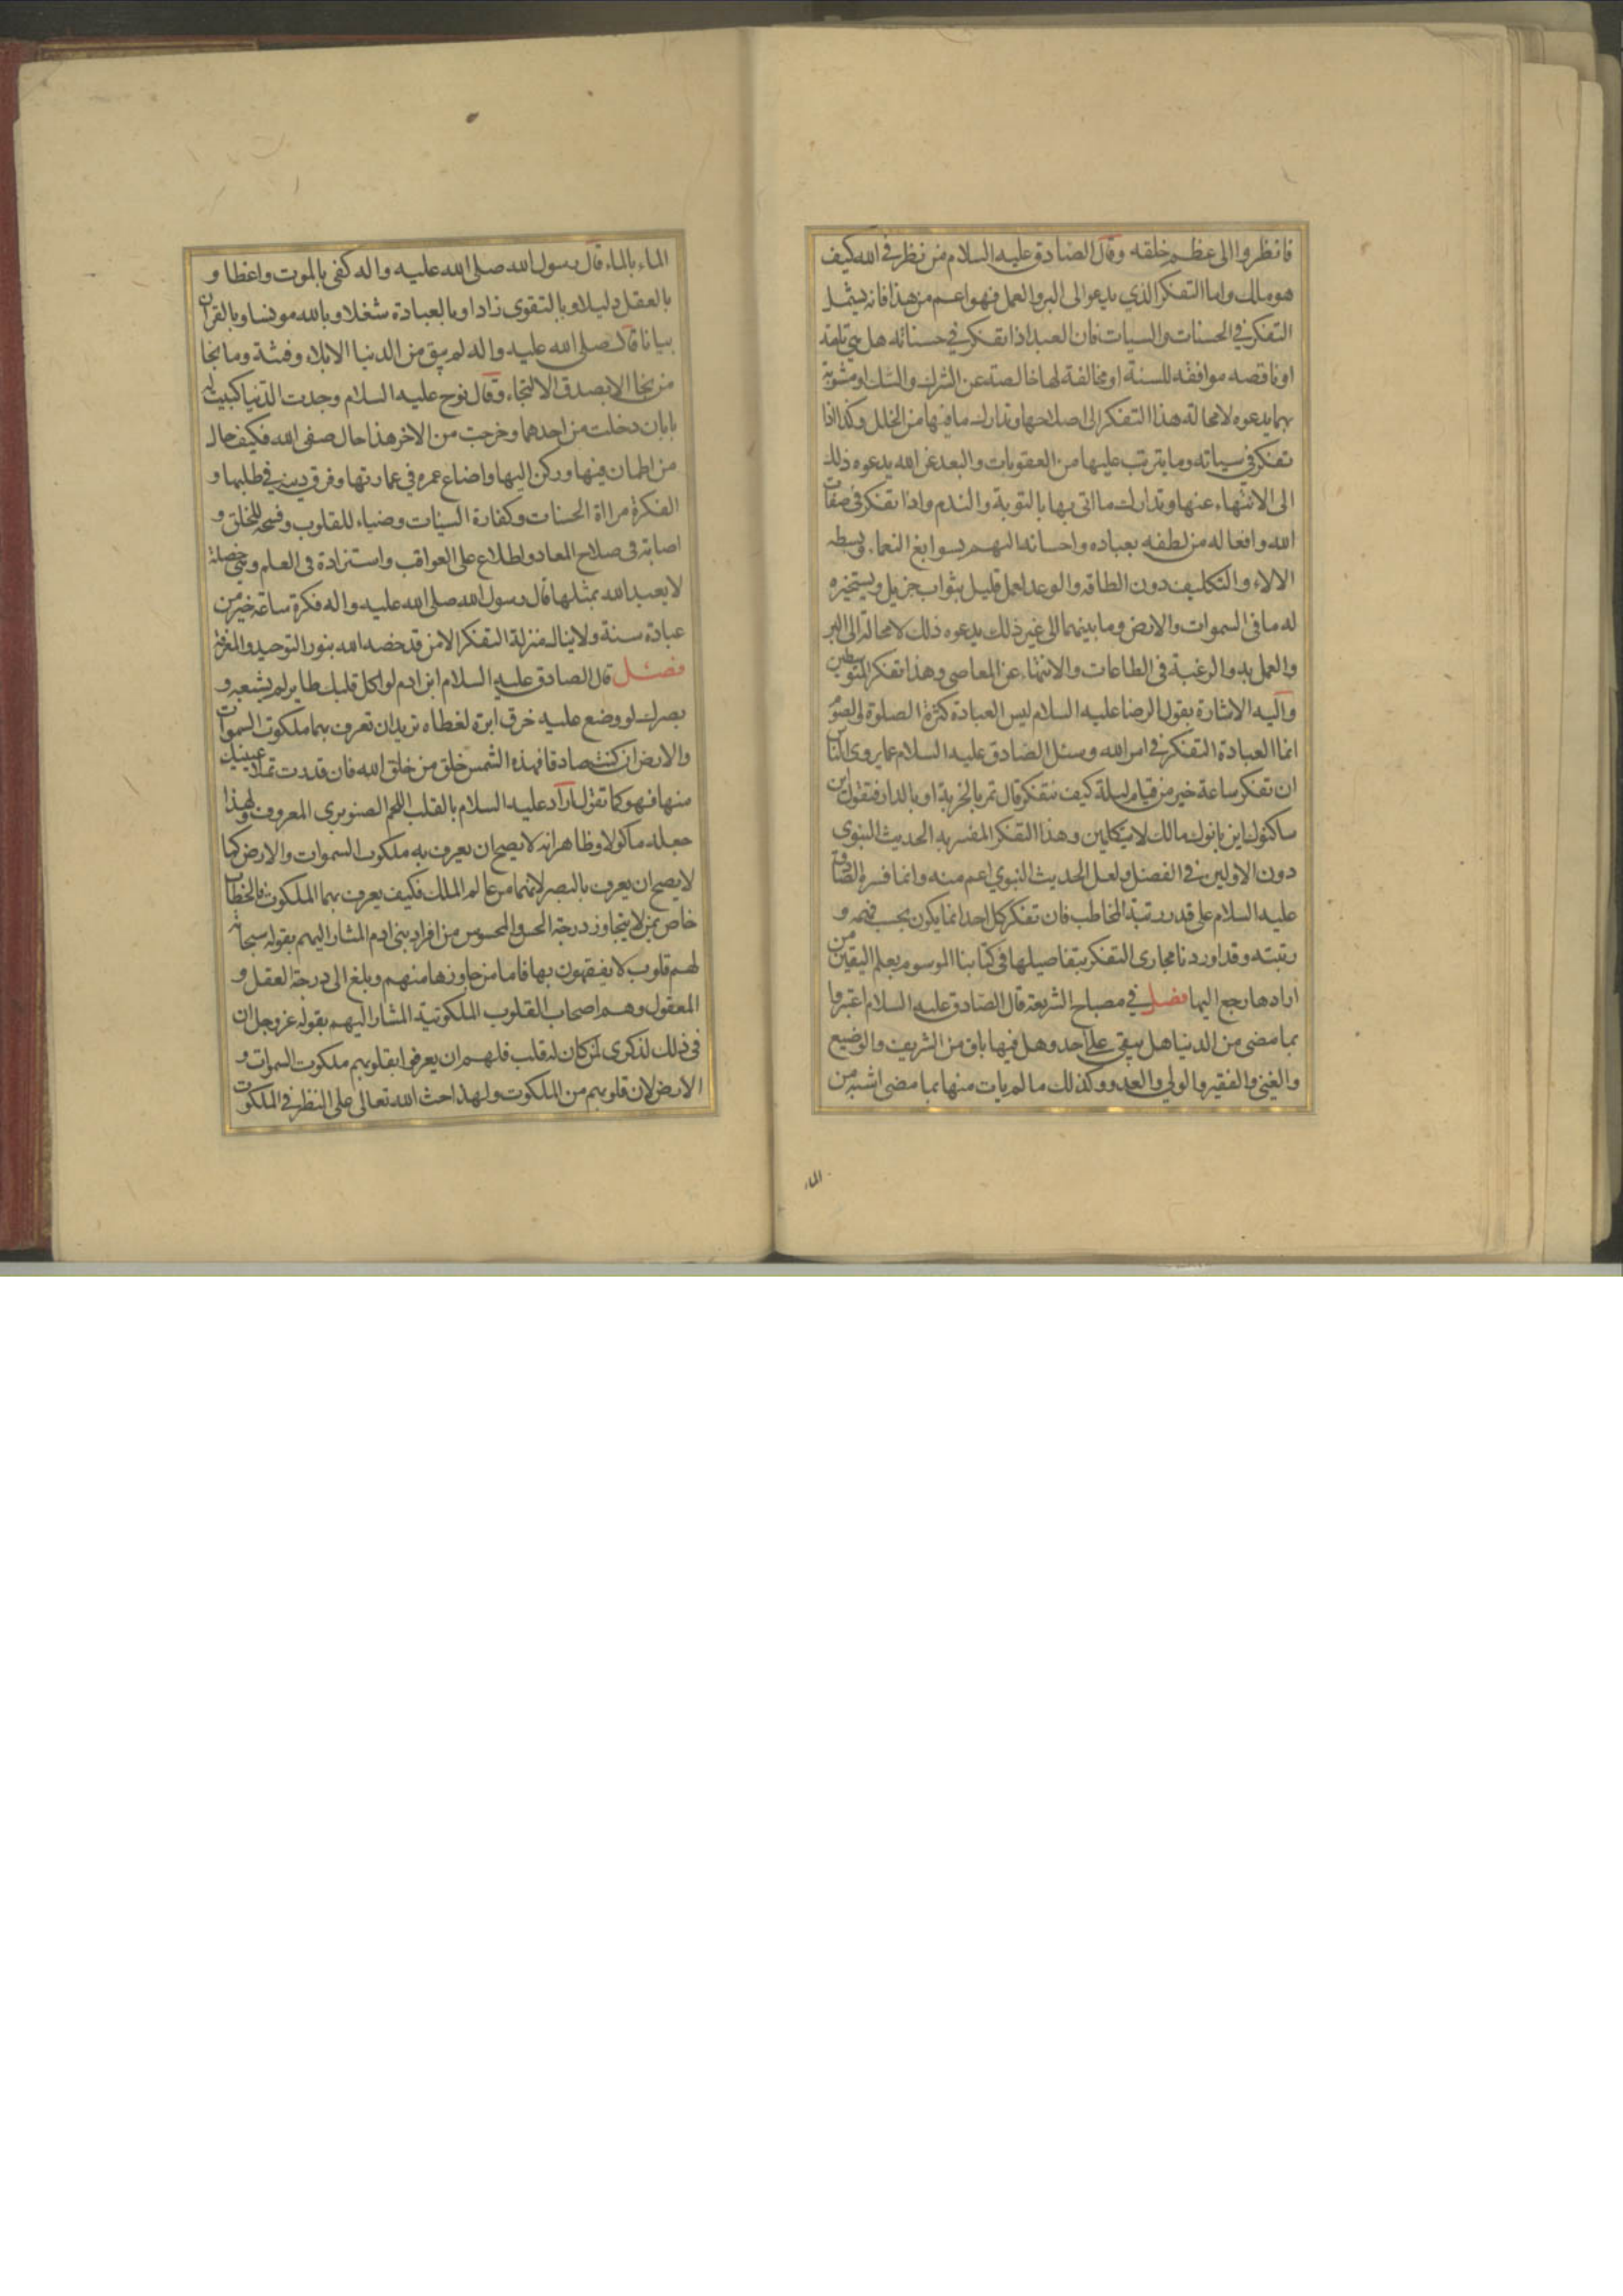 فانظروا الى عظم خلقه وقال الصادق عليه السلام من نظر في الله كيف
هو هلك واما التفكر الذي يدعو الى البر والعمل فهو اعم من هذا فانه يشمل
التفكر في الحسنات والسيات فان العبد اذا تفكر في حسناته هل هي تامة
او ناقصه موافقه للسنة او مخالفة لها خالصته عن الشرك والشك او مشوبة
بهما يدعوه لا محالة هذا التفكر الى اصلاحها وتدارك ما فيها من الخلل وكذا اذا
تفكر في سياته وما يترتب عليها من العقوبات والبعد عن الله يدعوه ذلك
الى الانتهاء عنها وتدارك ما اتى بها بالتوبة والندم واذا تفكر في صفات
الله وافعاله من لطفه بعباده واحسانه اليهم بسوابغ النعماء وبسطه
الالاء والتكليف دون الطاقه والوعد لعمل قليل بثواب جزيل وتسخيره
له ما في السموات والارض وما بينهما الى غير ذلك يدعوه ذلك لا محالة الى البر
والعمل به والرغبة في الطاعات والانتهاء عن المعاصي وهذا تفكر المتوسطين
واليه الاشارة بقول الرضا عليه السلام ليس العبادة كثرة الصلوة والصوم
انما العبادة التفكر في امر الله وسئل الصادق عليه السلام عما يروي الناس
ان تفكر ساعة خير من قيام ليلة كيف نتفكر قال تمر بالخربة او بالدار فتقول اين
ساكنوك اين بانوك مالك لا يتكلمين وهذا التفكر المفسر به الحديث النبوي
دون الاولين في الفضل ولعل الحديث النبوي اعم منه وانما فسره الصادق
عليه السلام على قدر رتبة المخاطب فان تفكر كل احد انما يكون بحسب فهمه و
رتبته وقد اوردنا مجارى التفكر بتفاصيلها في كتابنا الموسوم بعلم اليقين من
ارادها رجع اليها فصل في مصباح الشريعة قال الصادق عليه السلام اعتبروا
بما مضى من الدنيا هل يبقى على احد وهل فيها باق من الشريف والوضيع
والغني والفقير والولي والعدو وكذلك ما لم يات منها بما مضى اشبه من
الماء
الماء بالماء قال رسول الله صلى الله عليه واله كفى بالموت واعظا و
بالعقل دليلا وبالتقوى زادا وبالعبادة شغلا وبالله مونسا وبالقران
بيانا قال صلى الله عليه واله لم يبق من الدنيا الا بلاء وفتنة وما نجا
من نجا الا بصدق الالتجاء وقال نوح عليه السلام وجدت الدنيا كبيت له
بابان دخلت من احدهما وخرجت من الاخر هذا حال صفى الله فكيف حال
من اطمان فيها وركن اليها واضاع عمره في عمارتها وفرق دينه في طلبها و
الفكرة مراة الحسنات وكفارة السيئات وضياء للقلوب وفسحة للخلق و
اصابة في صلاح المعاد واطلاع على العواقب واستزادة في العلم وهي خصلة
لا يعبد الله بمثلها قال رسول الله صلى الله عليه واله فكرة ساعة خير من
عبادة سنة ولا ينال منزلة التفكر الا من قد خصه الله بنور التوحيد والمعرفة
فصل قال الصادق عليه السلام ابن ادم لو اكل قلبك طاير لم يشبعه و
بصرك لو وضع عليه خرق ابرة لغطاه تريد ان تعرف بهما ملكوت السموات
والارض ان كنت صادقا فهذه الشمس خلق من خلق الله فان قدرت تملا عينيك
منها فهو كما تقول اراد عليه السلام بالقلب اللحم الصنوبرى المعروف ولهذا
جعله ماكولا وظاهر انه لا يصح ان يعرف به ملكوت السموات والارض كما
لا يصح ان يعرف بالبصر لانهما من عالم الملك فكيف يعرف بهما الملكوت فالخطاب
خاص بمن لا يتجاوز درجة الحس والمحسوس من افراد بنى ادم المشار اليهم بقوله سبحانه
لهم قلوب لا يفقهون بها فاما من جاوزها منهم وبلغ الى درجة العقل و
المعقول وهم اصحاب القلوب الملكوتية المشار اليهم بقوله عز وجل ان
في ذلك لذكرى لمن كان له قلب فلهم ان يعرفوا بقلوبهم ملكوت السموات و
الارض لان قلوبهم من الملكوت ولهذا حث الله تعالى على النظر في الملكوت